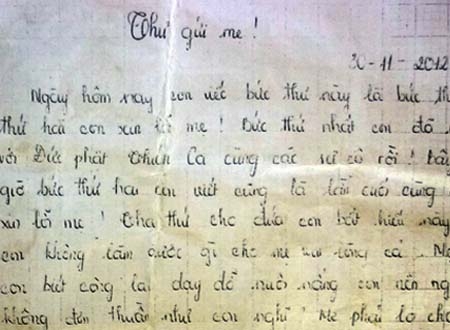 Thư gửi mẹ!
20-11-2012
Ngày hôm nay con viết bức thư này là bức th
thứ hai con xin lỗi mẹ! Bức thứ nhất con đã
với Đức phật Thích Ca cùng các sư cô rồi! Bây
giờ bức thứ hai con viết cũng là lần cuối cùng
xin lỗi mẹ! Tha thứ cho đứa con bất hiếu này
con không làm được gì cho mẹ vui lòng cả. Mẹ
con biết công lao dạy dỗ nuôi nấng con nên ng
không đơn thuần như con nghĩ! Mẹ phải lo cho